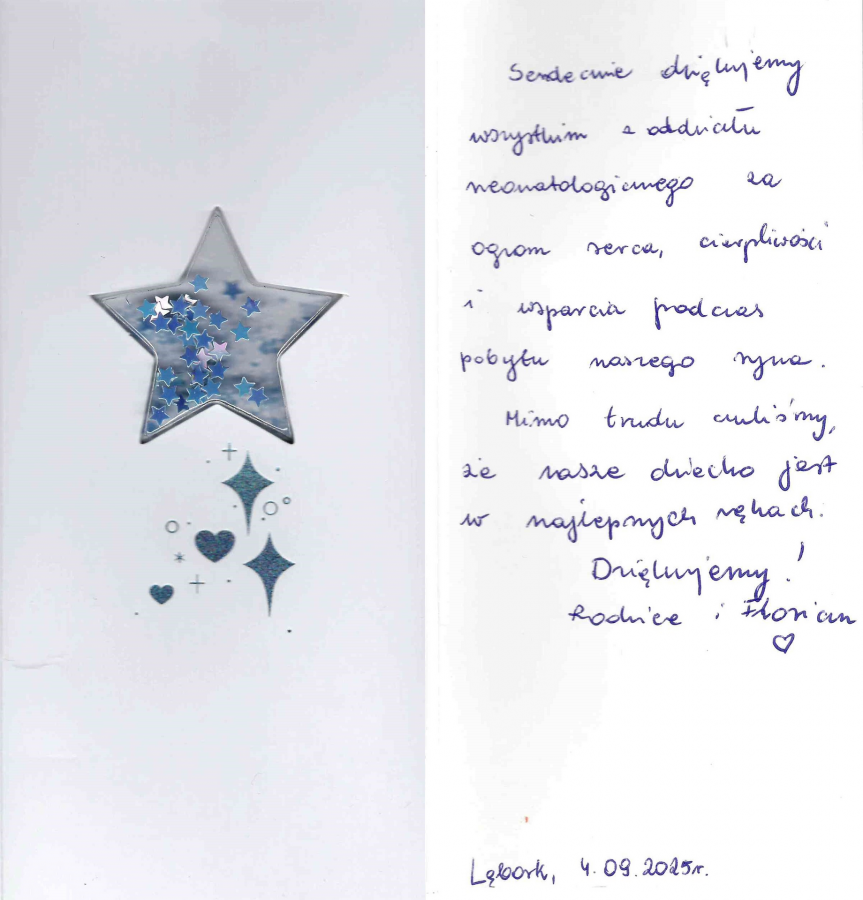 Serdecznie dziękujemy
wszystkim z oddziału
neonatologicznego za
ogrom serca, cierpliwości
i wsparcia podczas
pobytu naszego syna.
Mimo trudu czuliśmy,
że nasze dziecko jest
w najlepszych rękach.
Dziękujemy!
Rodzice i Florian
Lębork, 4.09.2025r.